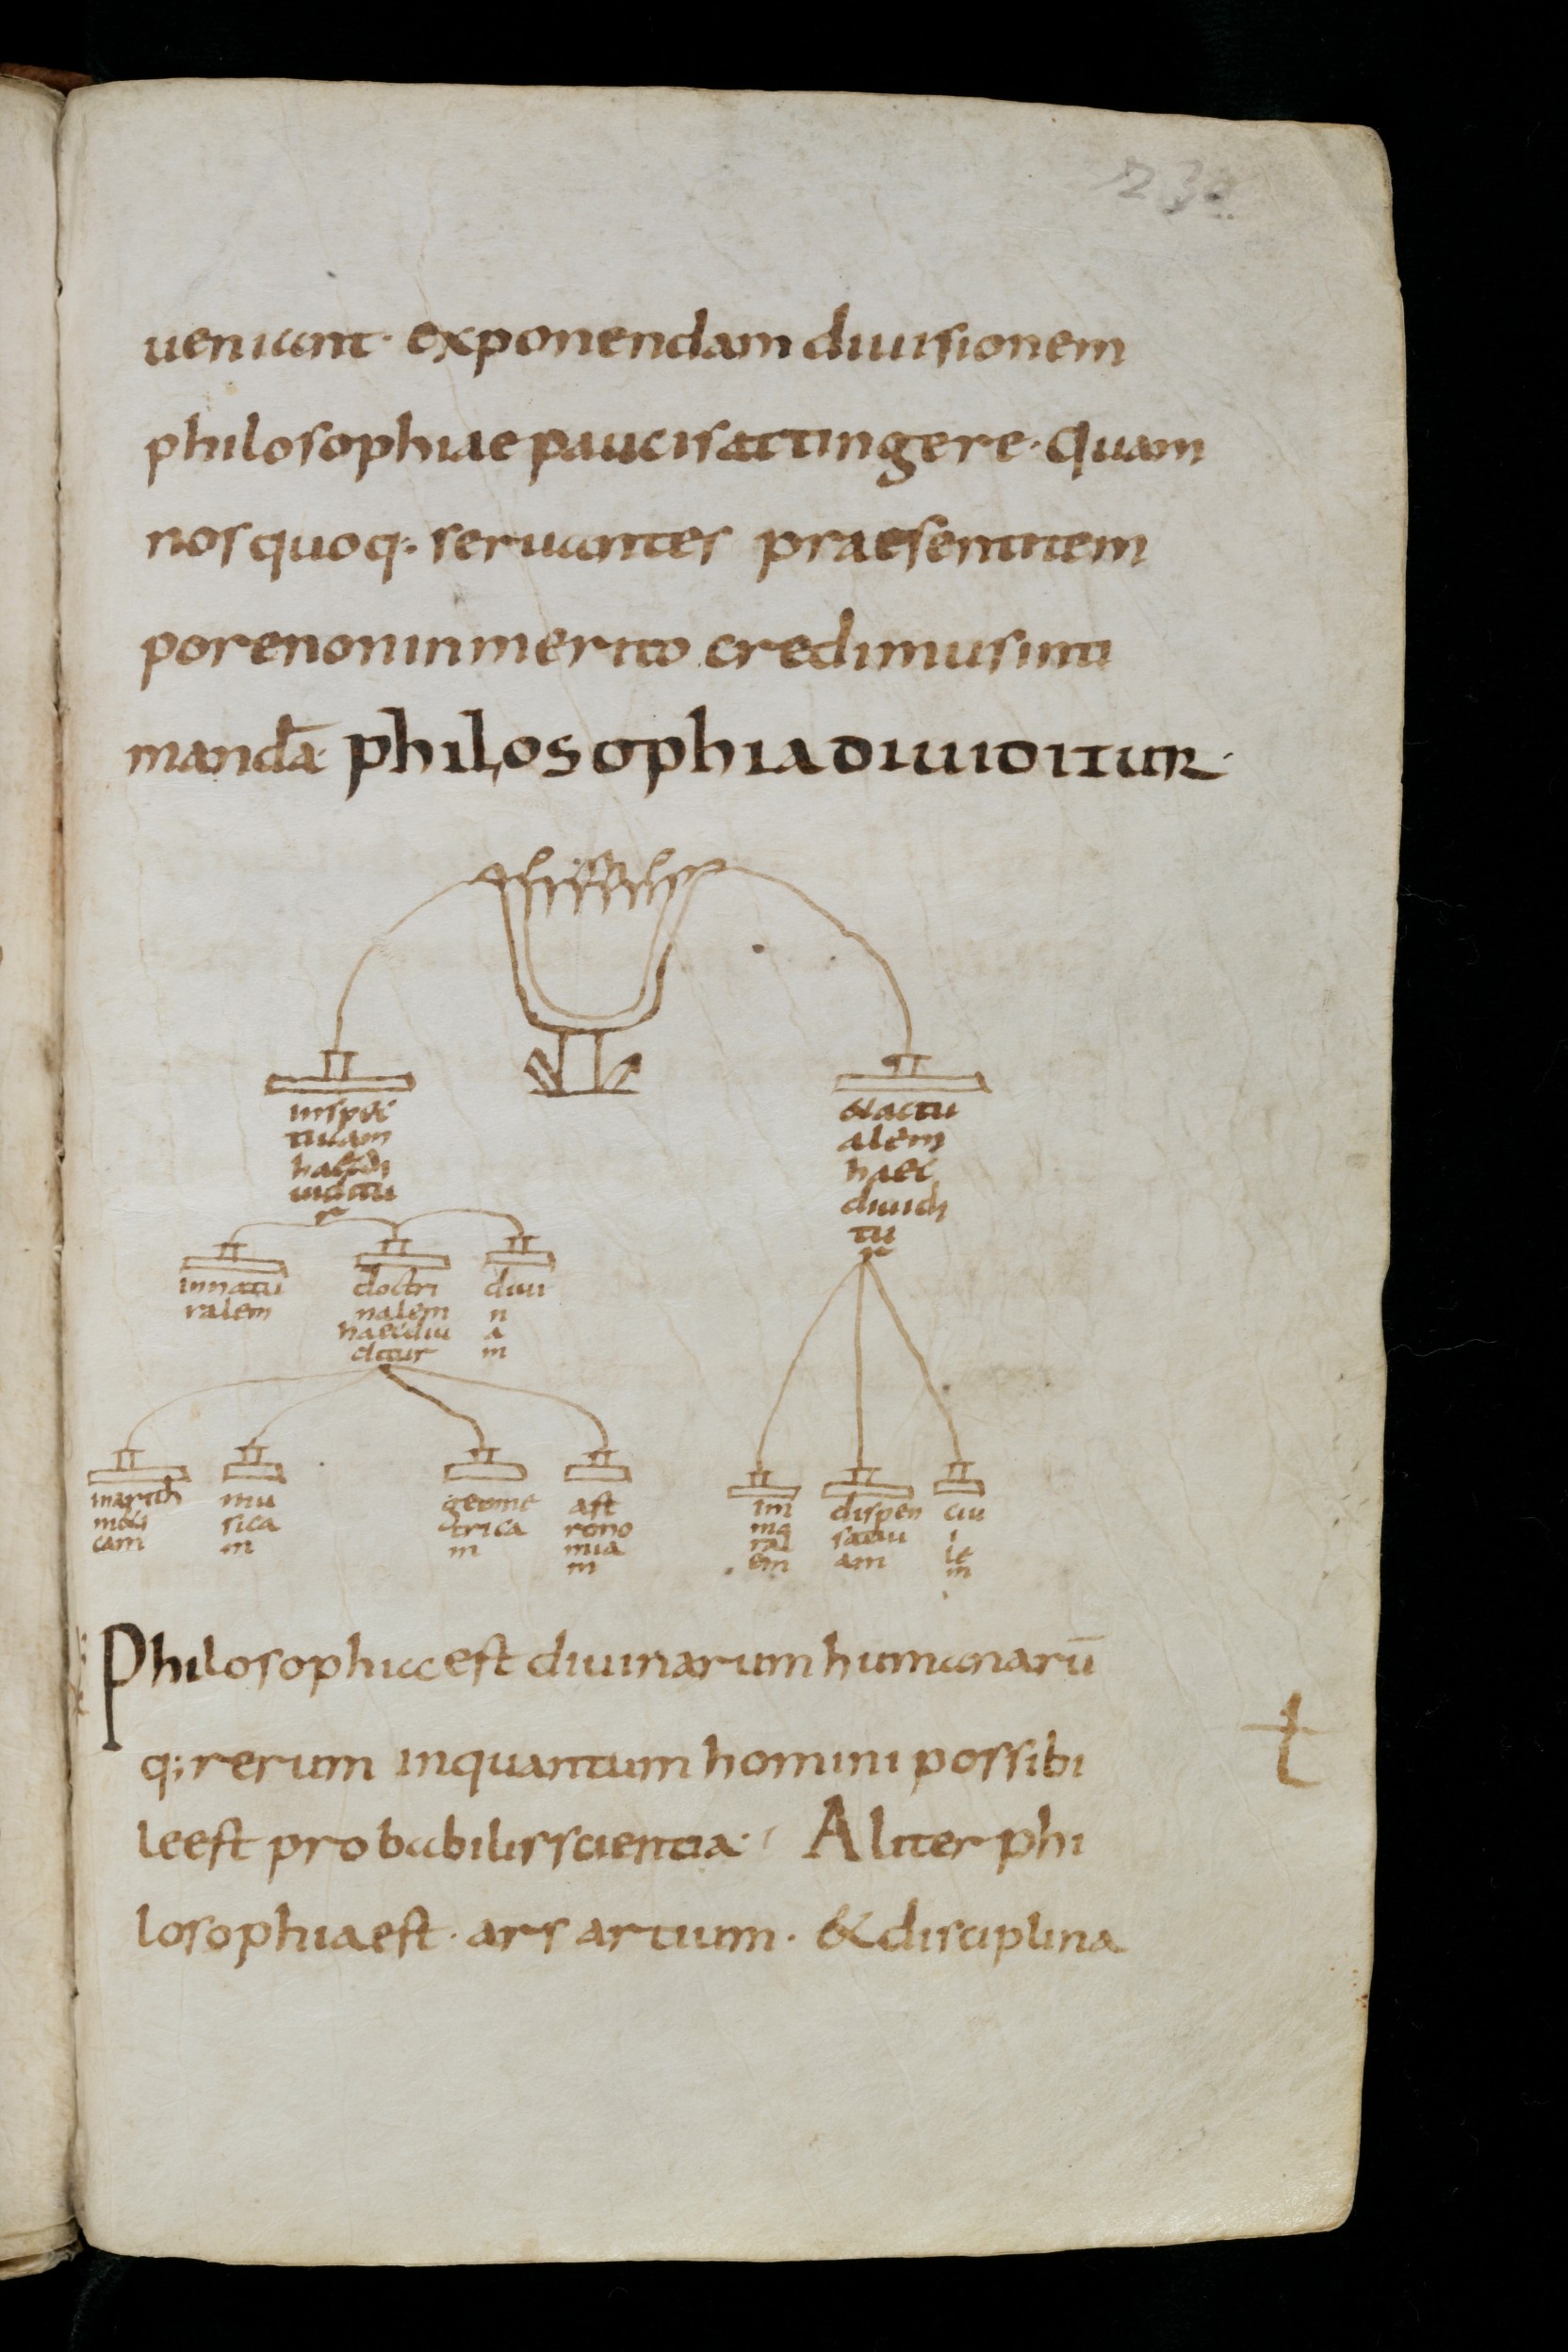 ueniant· exponendam diuisionem
philosophiae paucis attingere· Quam
nos quoq:· seruantes praesenti tem
pore non inmerito credimus imi
mandā· philosophia diuiditur·
inspec
tiuam
haec di
uiditu
r
& actu
alem
haec
diuidi
tu
r
in natu
ralem
doctri
nalem
haec diui
ditur
diui
n
a
m
in arith
meti
cam
mu
sica
m
geome
trica
m
ast
rono
mia
m
im
mo
ral
em
dispen
satiu
am
ciu
i
le
m
Philosophia est diuinarum humanarū
q; rerum inquantum homini possibi
le est probabilis scientia· Aliter phi
losophia est· ars artium· & disciplina
t